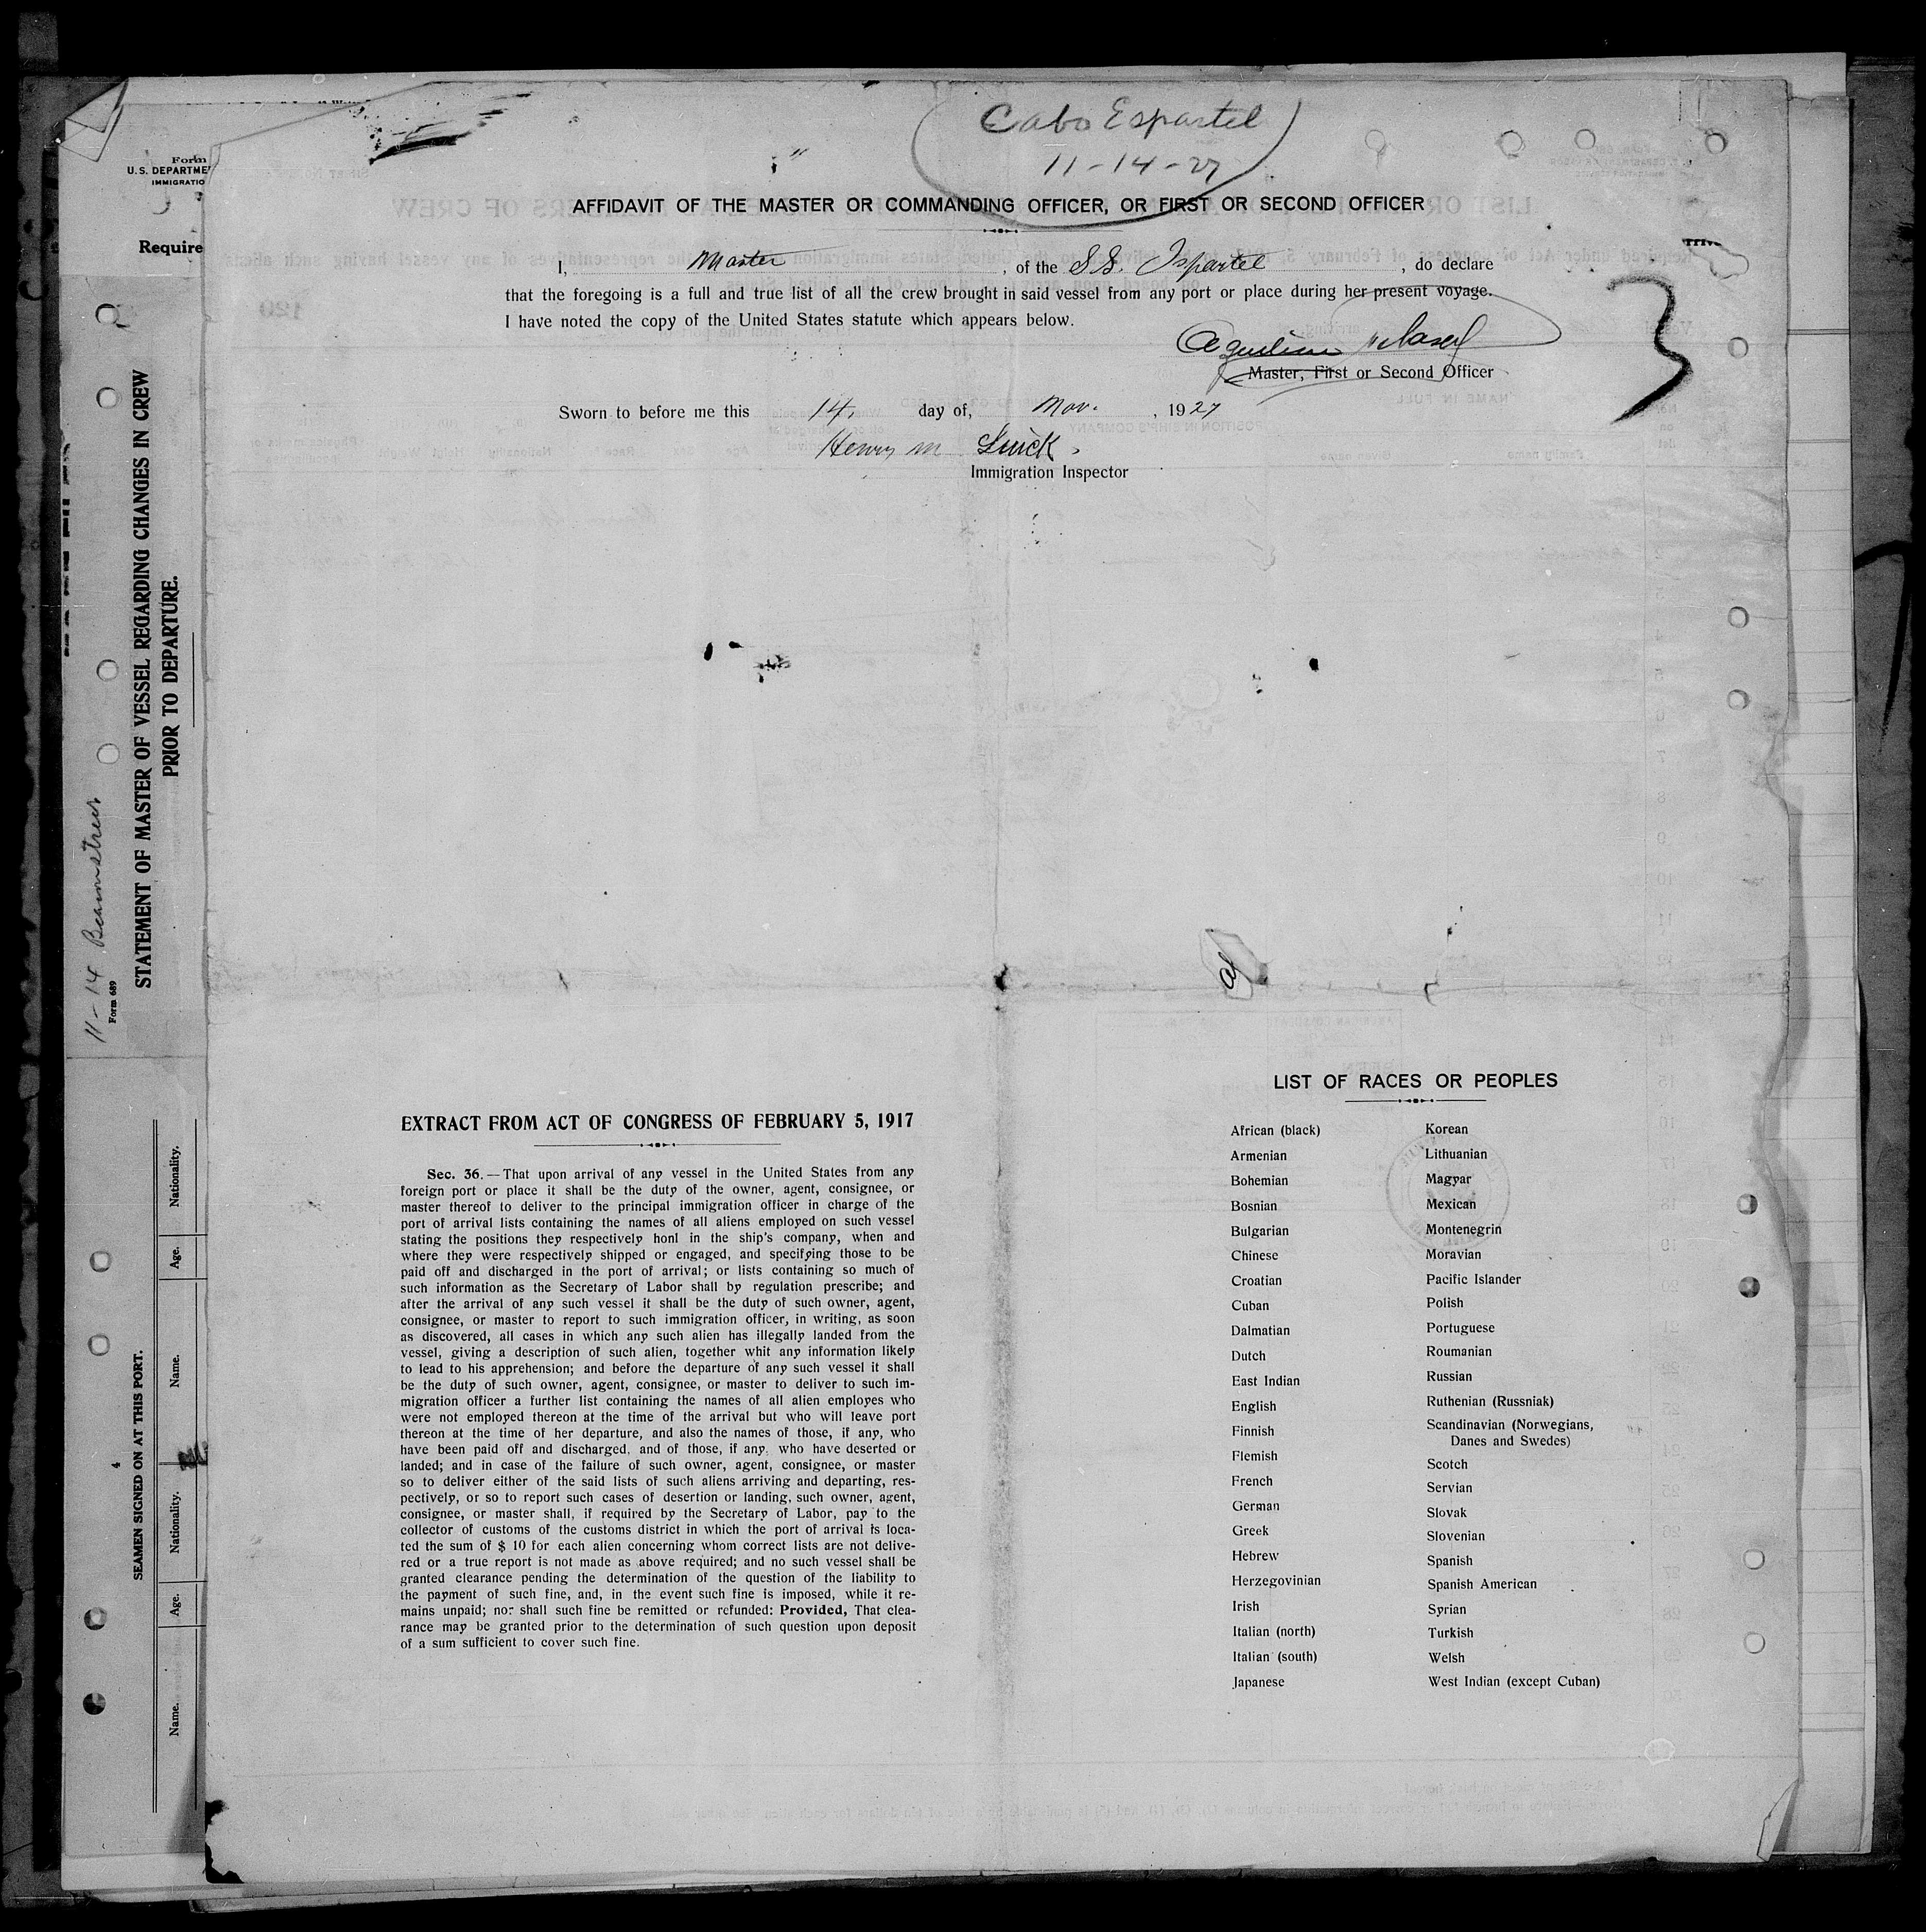 Cabo Espartel
11-14-27
AFFIDAVIT OF THE MASTER OR COMMANDING OFFICER, OR FIRST OR SECOND OFFICER
I, Master, of the S.S. Ispartel, do declare
that the foregoing is a full and true list of all the crew brought in said vessel from any port or place during her present voyage.
I have noted the copy of the United States statute which appears below.
Master, First or Second Officer
Sworn to before me this 14, day of, Nov., 1927
Henry M
Immigration Inspector
3
Form
U.S. DEPARTME
IMMIGRATIO
Require
STATEMENT OF MASTER OF VESSEL REGARDING CHANGES IN CREW
PRIOR TO DEPARTURE.
11-14
Form 689
4
SEAMEN SIGNED ON AT THIS PORT.
Name. Age. Nationality. Name. Age. Nationality.
EXTRACT FROM ACT OF CONGRESS OF FEBRUARY 5, 1917
Sec. 36.—That upon arrival of any vessel in the United States from any
foreign port or place it shall be the duty of the owner, agent, consignee, or
master thereof to deliver to the principal immigration officer in charge of the
port of arrival lists containing the names of all aliens employed on such vessel
stating the positions they respectively honl in the ship's company, when and
where they were respectively shipped or engaged, and specifying those to be
paid off and discharged in the port of arrival; or lists containing so much of
such information as the Secretary of Labor shall by regulation prescribe; and
after the arrival of any such vessel it shall be the duty of such owner, agent,
consignee, or master to report to such immigration officer, in writing, as soon
as discovered, all cases in which any such alien has illegally landed from the
vessel, giving a description of such alien, together whit any information likely
to lead to his apprehension; and before the departure of any such vessel it shall
be the duty of such owner, agent, consignee, or master to deliver to such im-
migration officer a further list containing the names of all alien employes who
were not employed thereon at the time of the arrival but who will leave port
thereon at the time of her departure, and also the names of those, if any, who
have been paid off and discharged, and of those, if any, who have deserted or
landed; and in case of the failure of such owner, agent, consignee, or master
so to deliver either of the said lists of such aliens arriving and departing, res-
pectively, or so to report such cases of desertion or landing, such owner, agent,
consignee, or master shall, if required by the Secretary of Labor, pay to the
collector of customs of the customs district in which the port of arrival is loca-
ted the sum of $ 10 for each alien concerning whom correct lists are not delive-
red or a true report is not made as above required; and no such vessel shall be
granted clearance pending the determination of the question of the liability to
the payment of such fine, and, in the event such fine is imposed, while it re-
mains unpaid; nor shall such fine be remitted or refunded: Provided, That clea-
rance may be granted prior to the determination of such question upon deposit
of a sum sufficient to cover such fine.
LIST OF RACES OR PEOPLES
African (black)
Armenian
Bohemian
Bosnian
Bulgarian
Chinese
Croatian
Cuban
Dalmatian
Dutch
East Indian
English
Finnish
Flemish
French
German
Greek
Hebrew
Herzegovinian
Irish
Italian (north)
Italian (south)
Japanese
Korean
Lithuanian
Magyar
Mexican
Montenegrin
Moravian
Pacific Islander
Polish
Portuguese
Roumanian
Russian
Ruthenian (Russniak)
Scandinavian (Norwegians,
Danes and Swedes)
Scotch
Servian
Slovak
Slovenian
Spanish
Spanish American
Syrian
Turkish
Welsh
West Indian (except Cuban)